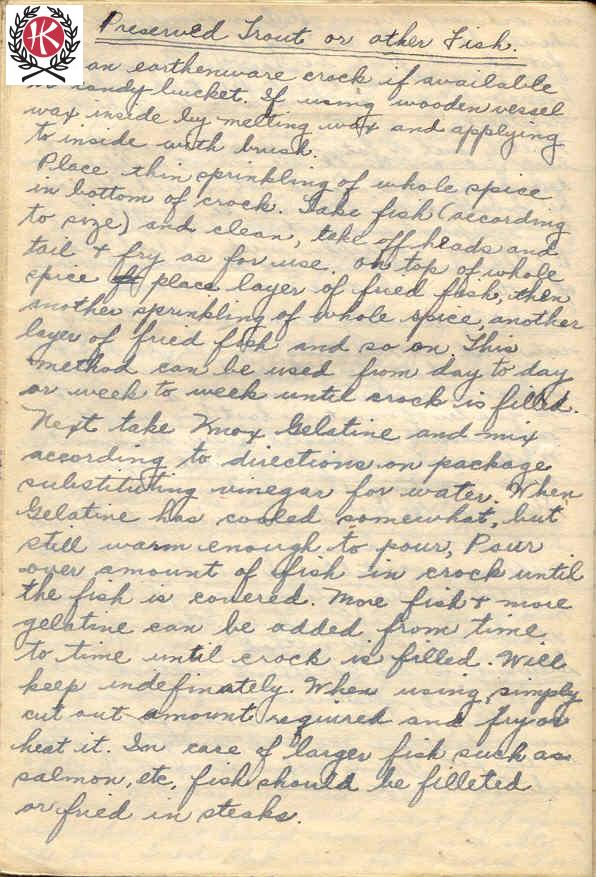 HK
Preserved Trout or other Fish.
an earthenware crock if available
or candy bucket. If using wooden vessel
wax inside by melting wax and applying
to inside with brush.
Place thin sprinkling of whole spice
in bottom of crock. Take fish (according
to size) and clean, take off heads and
tail & fry as for use. on top of whole
spice place layer of fried fish, then
another sprinkling of whole spice, another
layer of fried fish and so on. This
method can be used from day to day
or week to week until crock is filled.
Next take Knox Gelatine and mix
according to directions on package
substituting vinegar for water. When
Gelatine has cooled somewhat, but
still warm enough to pour, Pour
over amount of fish in crock until
the fish is covered. More fish & more
gelatine can be added from time
to time until crock is filled. Will
keep indefinately. When using, simply
cut out amount required and fry or
heat it. In care of larger fish such as
salmon, etc, fish should be filleted
or fried in steaks.